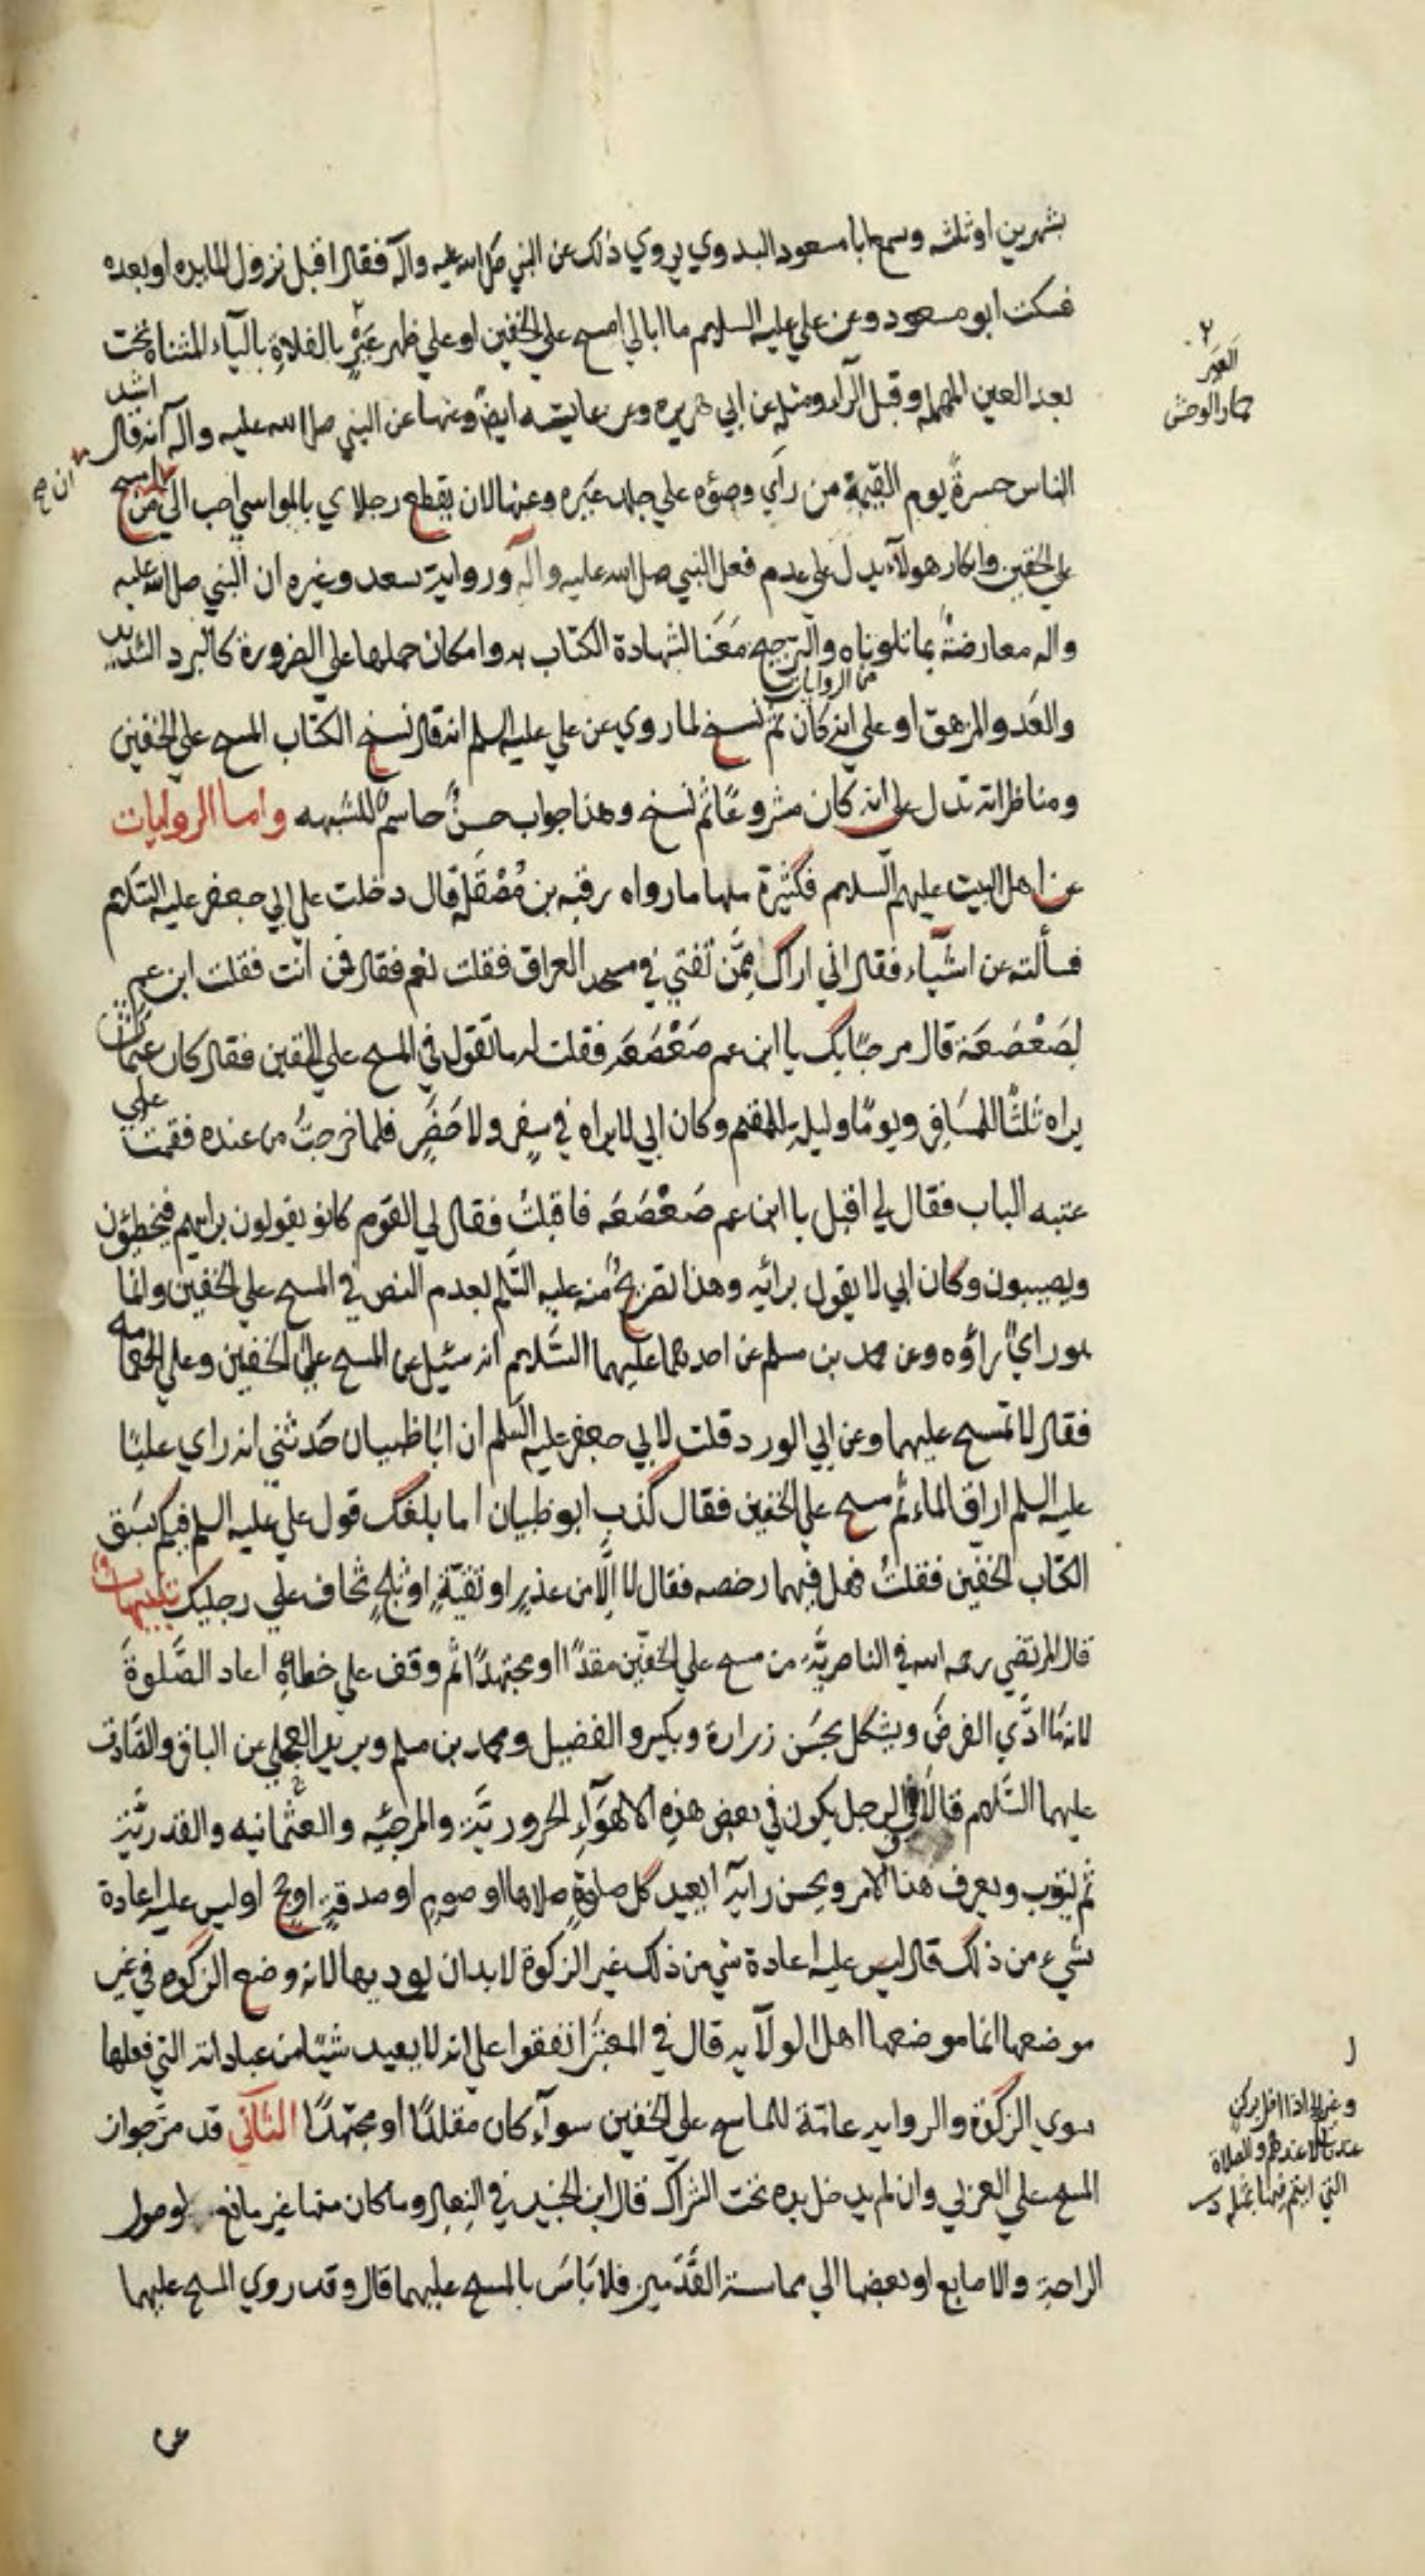 بشهرين او ثلثه وسمع ابا مسعود البدوي يروي ذلك عن النبي صلى الله عليه وآله فقال اقبل نزول المايده او بعده
فسكت ابو مسعود وعن علي عليه السلام ما ابالي امسح على الخفين او على ظهر عَيْرٍ بالفلاةِ بالياء المثناة تحت
بعد العين المهمله وقبل الرآء ومثله عن ابي هريره وعن عايشه ايضً وعنها عن النبي صلى الله عليه وآله انه قال اشد
الناس حسرةً يوم القيمة من رأي وضوٌه علي جلد غيره وعنها لان يقطع رجلاي بالمواسي احب الي من ان امسح
على الخفين وانكار هولآء يدل علي عدم فعل النبي صلى الله عليه وآلهِ ورواية سعد وغيره ان النبي صلى الله عليه
واله معارضةٌ بما تلوناه والترجيح مَعَنا لشهادة الكتاب به وامكان حملها علي الضرورة كالبرد الشديد
من الروايات
والعَدو المرهق او علي انه كان ثم نسخ لما روي عن علي عليه السلم انه قال نسخ الكتاب المسح على الخفين
ومناظراته تدل على انه كان مشروعًا ثم نسخ وهذا جواب حسنٌ حاسمٌ للشبهه واما الروايات
عن اهل البيت عليهم السلام فكثيرة منها ما رواه رقبه بن مُصْقَلة قال دخلت على ابي جعفر عليه السّلام
فسألته عن اشيآء فقال اني اراك مِمَّن تفتي في مسجد العراق فقلت نعم فقال فمن انت فقلت ابن عم
لِصَعْصَعَة قال مرحبًا بك يا ابن عم صَعْصَعَه فقلت له ما تقول في المسح على الخفين فقال كان عثمان
يراه ثلثًا للمسَافِر ويومًا وليلة للمقيم وكان ابي لا يراه في سفرٍ ولا حَضَرٍ فلما خرجتُ من عنده فقمت علي
عتبه الباب فقال لي اقبل يا ابن عم صَعْصَعَه فاقبلتُ فقال لي القوم كانو يقولون برايهم فيخطئون
ويصيبون وكان ابي لا يقول برائيه وهذا تصريحٌ منه عليه السّلم بعدم النص في المسح على الخفين وانما
هو رايٌ راؤه وعن محمد بن مسلم عن احدهما عليهما السّلام انه سئيل عن المسح على الخفين وعلى العمامه
فقال لا تمسح عليهما وعن ابي الورد قلت لابي جعفر عليه السّلم ان ابا ظبيان حَدثني انه راي عليًا
عليه السلم اراق الماء ثم مسح على الخفين فقال كذب ابو ظبيان اما بلغك قول علي عليه السلم فيكم سَبَق
الكتاب الخفين فقلتُ فهل فيهما رخصه فقال لا الّا من عذرٍ او تقيّةٍ او ثلجٍ تخاف على رجليك تنبيهات
قال المرتضي رحمه الله في الناصريَّه من مسح علي الخفّين مقلدًا او مجتهدًا ثم وقف على خطائهِ اعاد الصَّلوةَ
لانه ما ادّي الفرضَ ويشكل بحسَن زرارة وبكير والفضيل ومحمد بن مسلم وبريد العجلي عن الباقر والصّادق
عليهما السّلام قالا في الرجل يكون في بعض هذهِ الاهوَآءِ الحروريّة والمرجئيه والعثمانيه والقدريّة
ثم يتوب ويعرف هذا الامر ويحسن رايه ايعيد كل صلوةٍ صلاها او صومٍ او صدقةٍ او حج او ليس عليه اعادة
شيء من ذلك قال ليس عليه اعادة شي من ذلك غير الزكوة لابد ان يوديها لانه وضع الزكوه في غير
موضعها انما موضعها اهل الولآيه قال في المعتبر اتفقوا على انه لا يعيد شيئًا من عباداته التي فعلها
سوي الزكوة والروايه عامّة للماسح على الخفين سوآء كان مقلدًا او مجتهدًا الثآني قد مرّ جواز
المسح علي العربي وان لم يدخل يده تحت الشراك قال ابن الجنيد في النِعال وما كان منها غير مانع لوصول
الراحة والاصابع او بعضها الي مماسة القَدَمين فلا بَاسَ بالمسح عليهما قال وقد روي المسح عليهما
٢
العَيَر
حمار الوحش
ان صح